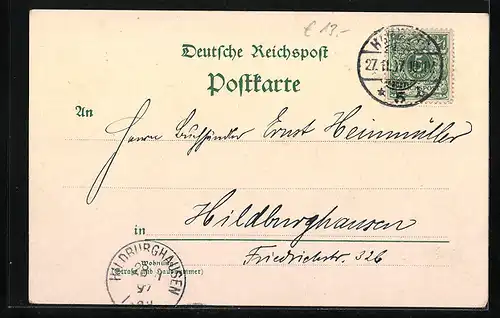 € 13.-
Deutsche Reichspost
Postkarte
27.11.97
* 5
An
Herrn Buchbinder Ernst Heinmüller
in
Hildburghausen
Friedrichstr. 326
HILDBURGHAUSEN
Wohnung
(Straße und Hausnummer)